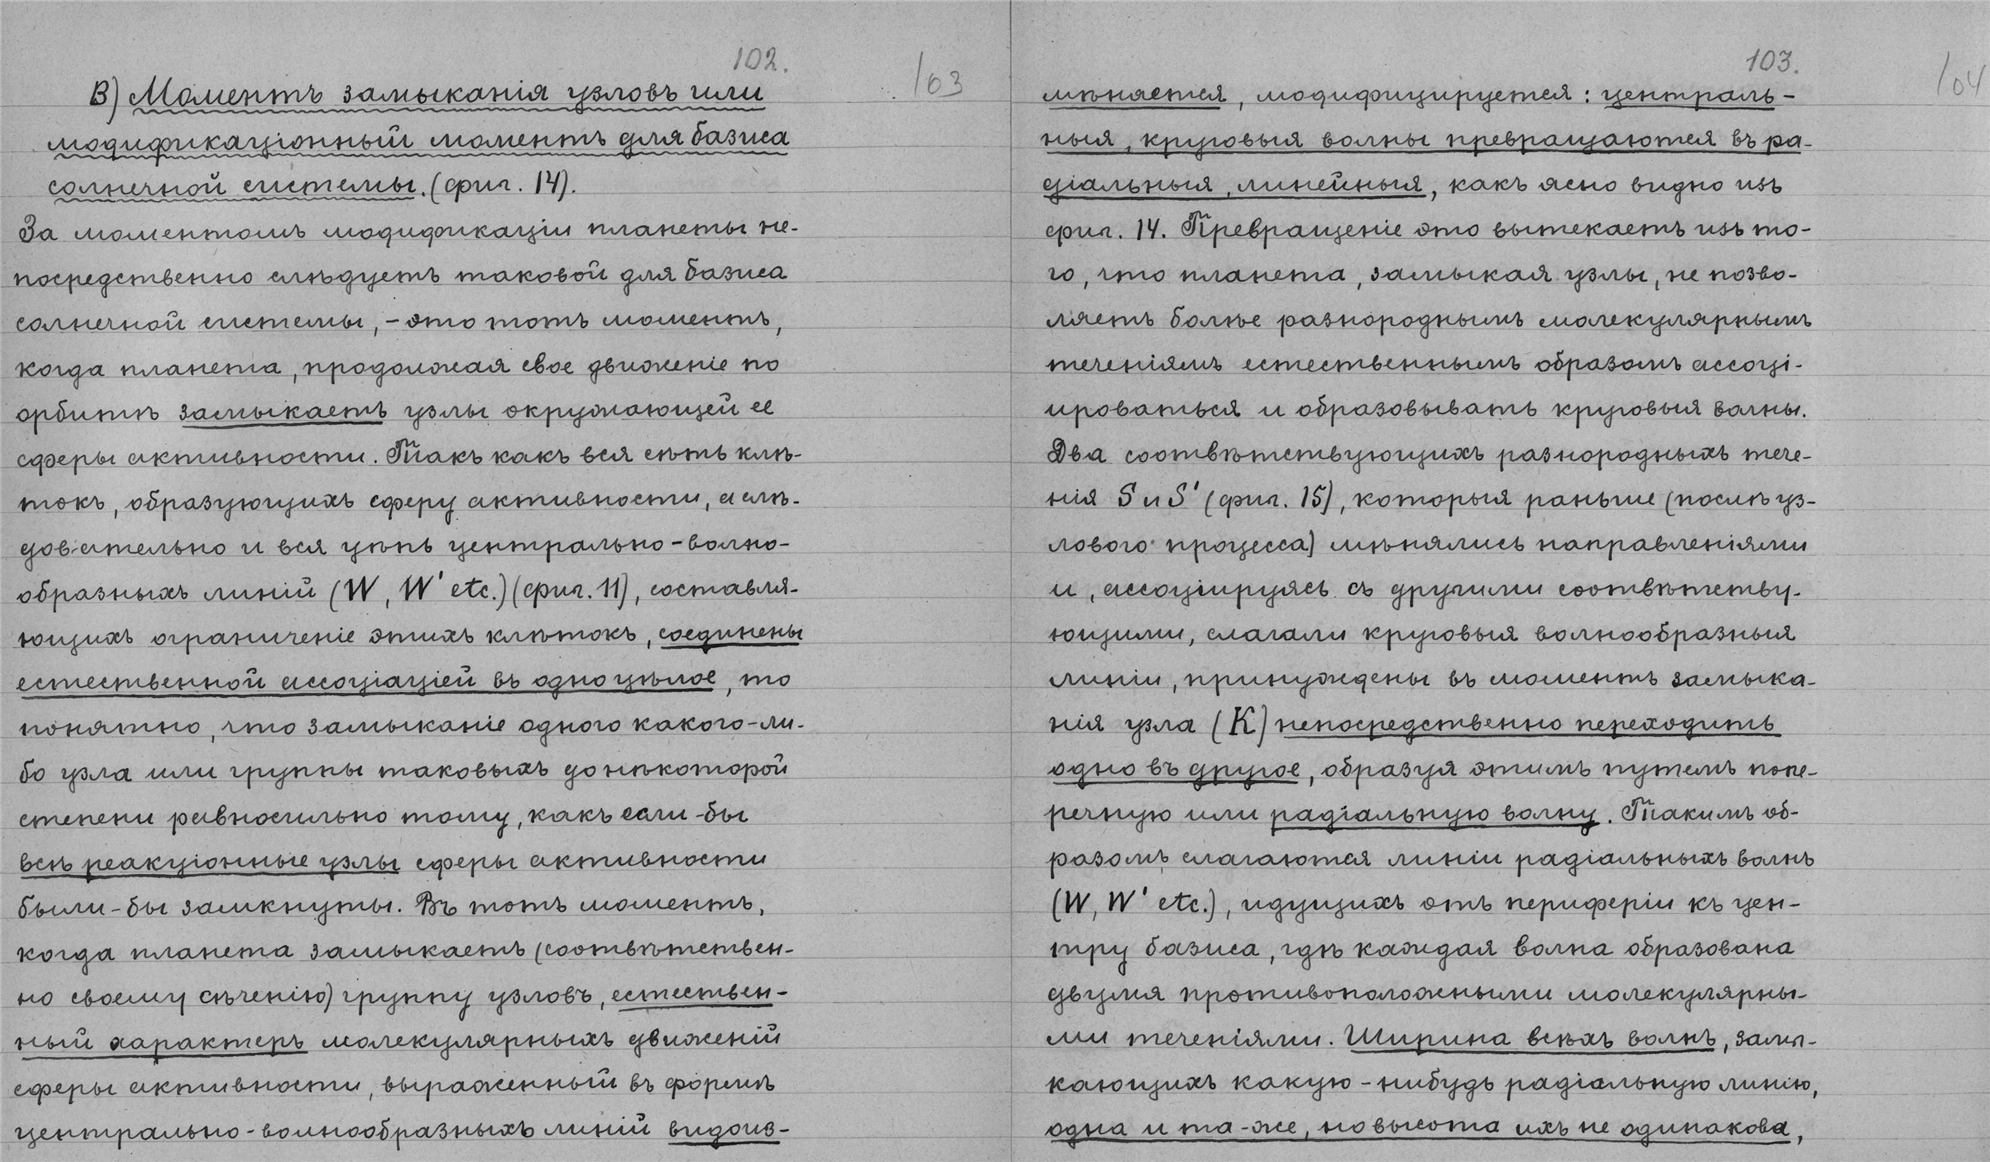 102.
103
B) Моментъ замыканія узловъ или
модификаціонный моментъ для базиса
солнечной системы. (фиг. 14).
За моментомъ модификаціи планеты не-
посредственно слѣдуетъ таковой для базиса
солнечной системы, – это тотъ моментъ,
когда планета, продолжая свое движеніе по
орбитѣ замыкаетъ узлы окружающей ее
сферы активности. Такъ какъ вся сѣть клѣ-
токъ, образующихъ сферу активности, а слѣ-
довательно и вся цѣпь центрально-волно-
образныхъ линій (W, W' etc.) (фиг. 11), составля-
ющихъ ограниченіе этихъ клѣтокъ, соединены
естественной ассоціаціей въ одно цѣлое, то
понятно, что замыканіе одного какого-ли-
бо узла или группы таковыхъ до нѣкоторой
степени равносильно тому, какъ если-бы
всѣ реакціонные узлы сферы активности
были-бы замкнуты. Въ тотъ моментъ,
когда планета замыкаетъ (соотвѣтствен-
но своему сѣченію) группу узловъ, естествен-
ный характеръ молекулярныхъ движеній
сферы активности, выраженный въ формѣ
центрально-волнообразныхъ линій видоиз-
103.
104
мѣняется, модифицируется: централь-
ныя, круговыя волны превращаются въ ра-
діальныя, линейныя, какъ ясно видно изъ
фиг. 14. Превращеніе это вытекаетъ изъ то-
го, что планета, замыкая узлы, не позво-
ляетъ болѣе разнороднымъ молекулярнымъ
теченіямъ естественнымъ образомъ ассоці-
ироваться и образовывать круговыя волны.
Два соотвѣтствующихъ разнородныхъ тече-
нія S и S' (фиг. 15), которыя раньше (послѣ уз-
лового процесса) мѣнялись направленіями
и, ассоціируясь съ другими соотвѣтству-
ющими, слагали круговыя волнообразныя
линіи, принуждены въ моментъ замыка-
нія узла (К) непосредственно переходить
одно въ другое, образуя этимъ путемъ попе-
речную или радіальную волну. Такимъ об-
разомъ слагаются линіи радіальныхъ волнъ
(W, W' etc.), идущихъ отъ периферіи къ цен-
тру базиса, гдѣ каждая волна образована
двумя противоположными молекулярны-
ми теченіями. Ширина всѣхъ волнъ, замы-
кающихъ какую-нибудь радіальную линію,
одна и та-же, но высота ихъ не одинакова,